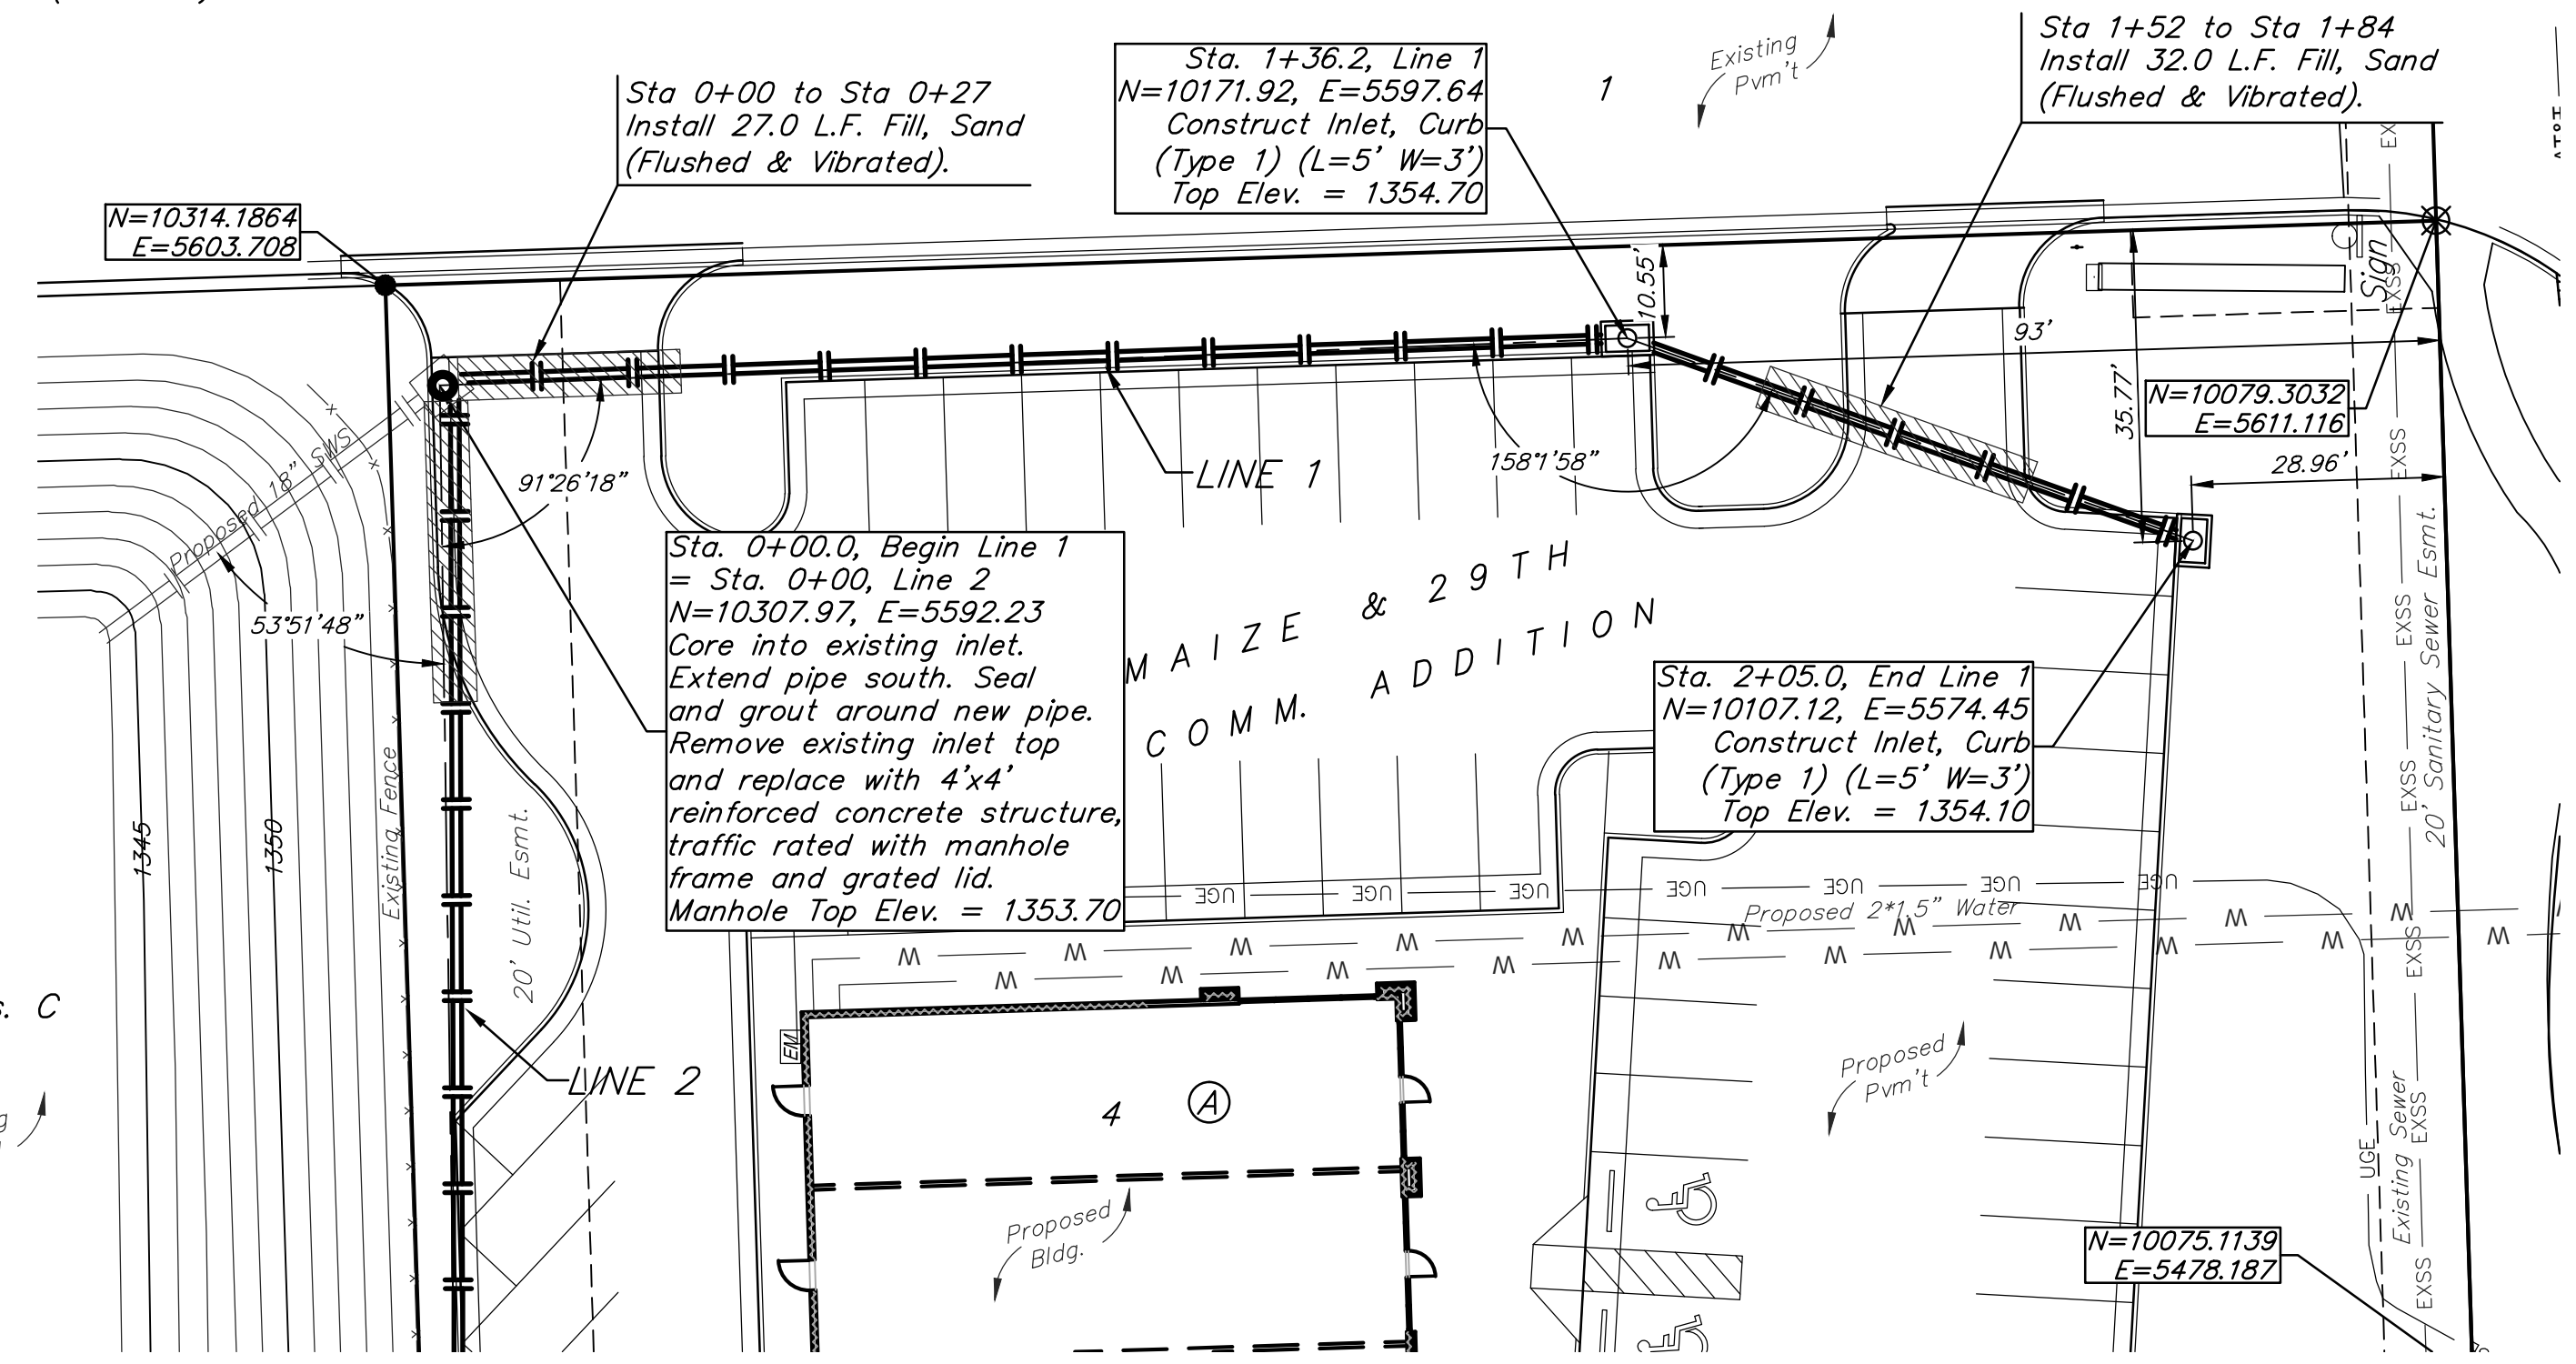 Sta 0+00 to Sta 0+27
Install 27.0 L.F. Fill, Sand
(Flushed & Vibrated).
Sta. 1+36.2, Line 1
N=10171.92, E=5597.64
Construct Inlet, Curb
(Type 1) (L=5' W=3')
Top Elev. = 1354.70
1
Existing
Pvm't
Sta 1+52 to Sta 1+84
Install 32.0 L.F. Fill, Sand
(Flushed & Vibrated).
N=10314.1864
E=5603.708
10.55'
93'
35.77'
Sign
N=10079.3032
E=5611.116
28.96'
91°26'18"
LINE 1
158°1'58"
Proposed 18" SWS
53°51'48"
Sta. 0+00.0, Begin Line 1
= Sta. 0+00, Line 2
N=10307.97, E=5592.23
Core into existing inlet.
Extend pipe south. Seal
and grout around new pipe.
Remove existing inlet top
and replace with 4'x4'
reinforced concrete structure,
traffic rated with manhole
frame and grated lid.
Manhole Top Elev. = 1353.70
MAIZE & 29TH
COMM. ADDITION
Sta. 2+05.0, End Line 1
N=10107.12, E=5574.45
Construct Inlet, Curb
(Type 1) (L=5' W=3')
Top Elev. = 1354.10
20' Sanitary Sewer Esmt.
EX
EXSS
EXSS
EXSS
EXSS
EXSS
EXSS
EXSS
EXSS
EXSS
1345
1350
Existing Fence
20' Util. Esmt.
UGE UGE UGE UGE UGE UGE UGE
Proposed 2*1.5" Water
W W W W W W W W W W
W W W W W W W W W W
C
LINE 2
EM
4
A
Proposed
Bldg.
Proposed
Pvm't
UGE
Existing Sewer
N=10075.1139
E=5478.187